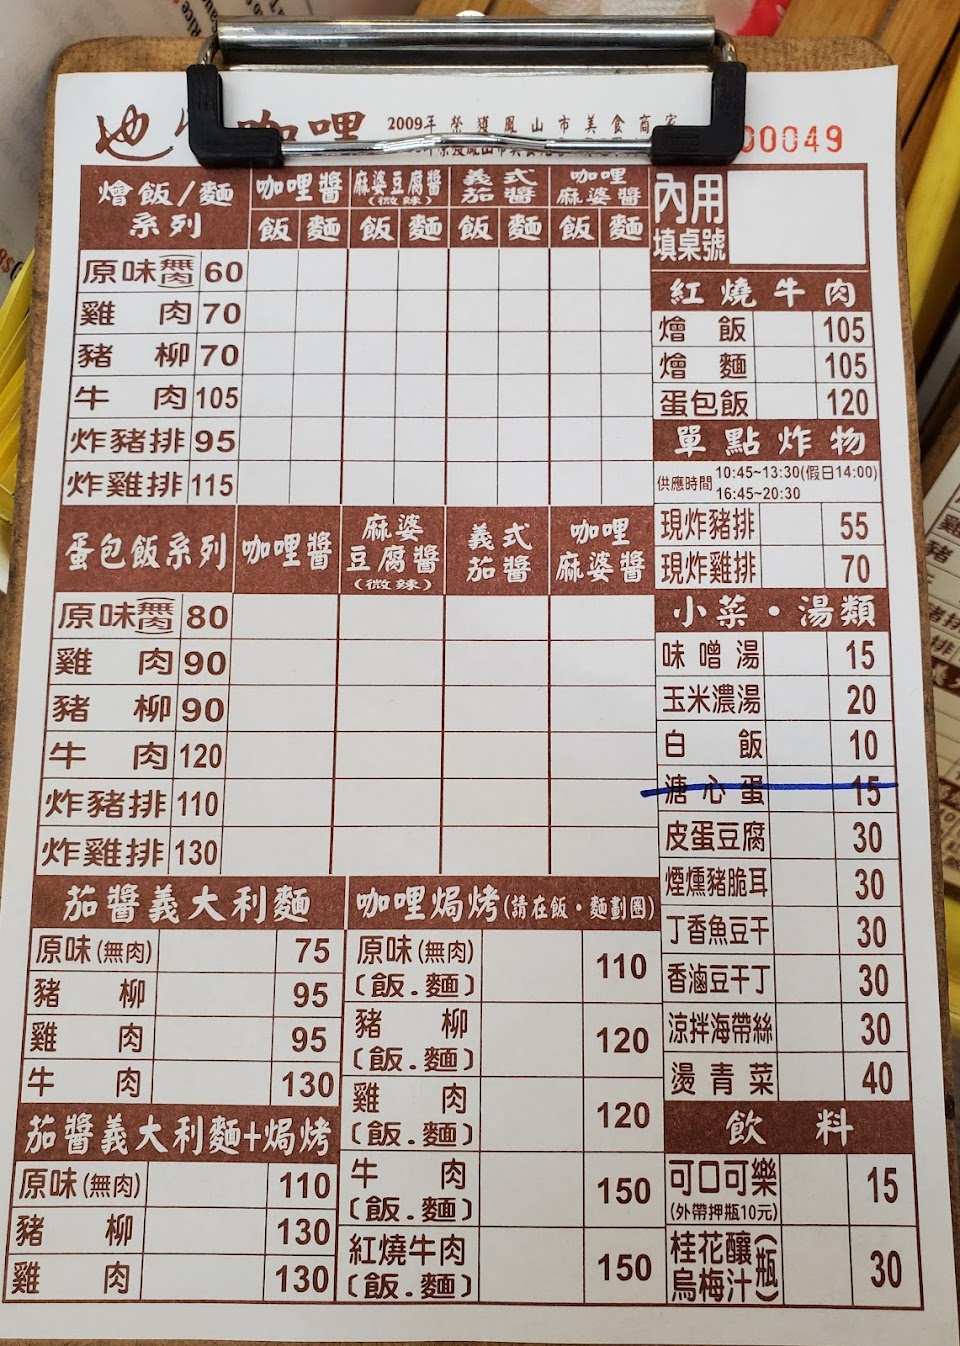 咖哩
2009年榮獲鳳山市美食商家
00049
燴飯/麵系列 咖哩醬 麻婆豆腐醬(微辣) 義式茄醬 咖哩麻婆醬
飯 麵 飯 麵 飯 麵 飯 麵
原味(無肉) 60
雞肉 70
豬柳 70
牛肉 105
炸豬排 95
炸雞排 115
蛋包飯系列 咖哩醬 麻婆豆腐醬(微辣) 義式茄醬 咖哩麻婆醬
原味(無肉) 80
雞肉 90
豬柳 90
牛肉 120
炸豬排 110
炸雞排 130
茄醬義大利麵
原味(無肉) 75
豬柳 95
雞肉 95
牛肉 130
茄醬義大利麵+焗烤
原味(無肉) 110
豬柳 130
雞肉 130
咖哩焗烤(請在飯・麵劃圈)
原味(無肉)
(飯.麵) 110
豬柳
(飯.麵) 120
雞肉
(飯.麵) 120
牛肉
(飯.麵) 150
紅燒牛肉
(飯.麵) 150
內用
填桌號
紅燒牛肉
燴飯 105
燴麵 105
蛋包飯 120
單點炸物
供應時間 10:45~13:30(假日14:00)
16:45~20:30
現炸豬排 55
現炸雞排 70
小菜・湯類
味噌湯 15
玉米濃湯 20
白飯 10
溏心蛋 15
皮蛋豆腐 30
煙燻豬脆耳 30
丁香魚豆干 30
香滷豆干丁 30
涼拌海帶絲 30
燙青菜 40
飲料
可口可樂 15
(外帶押瓶10元)
桂花釀
烏梅汁(瓶) 30